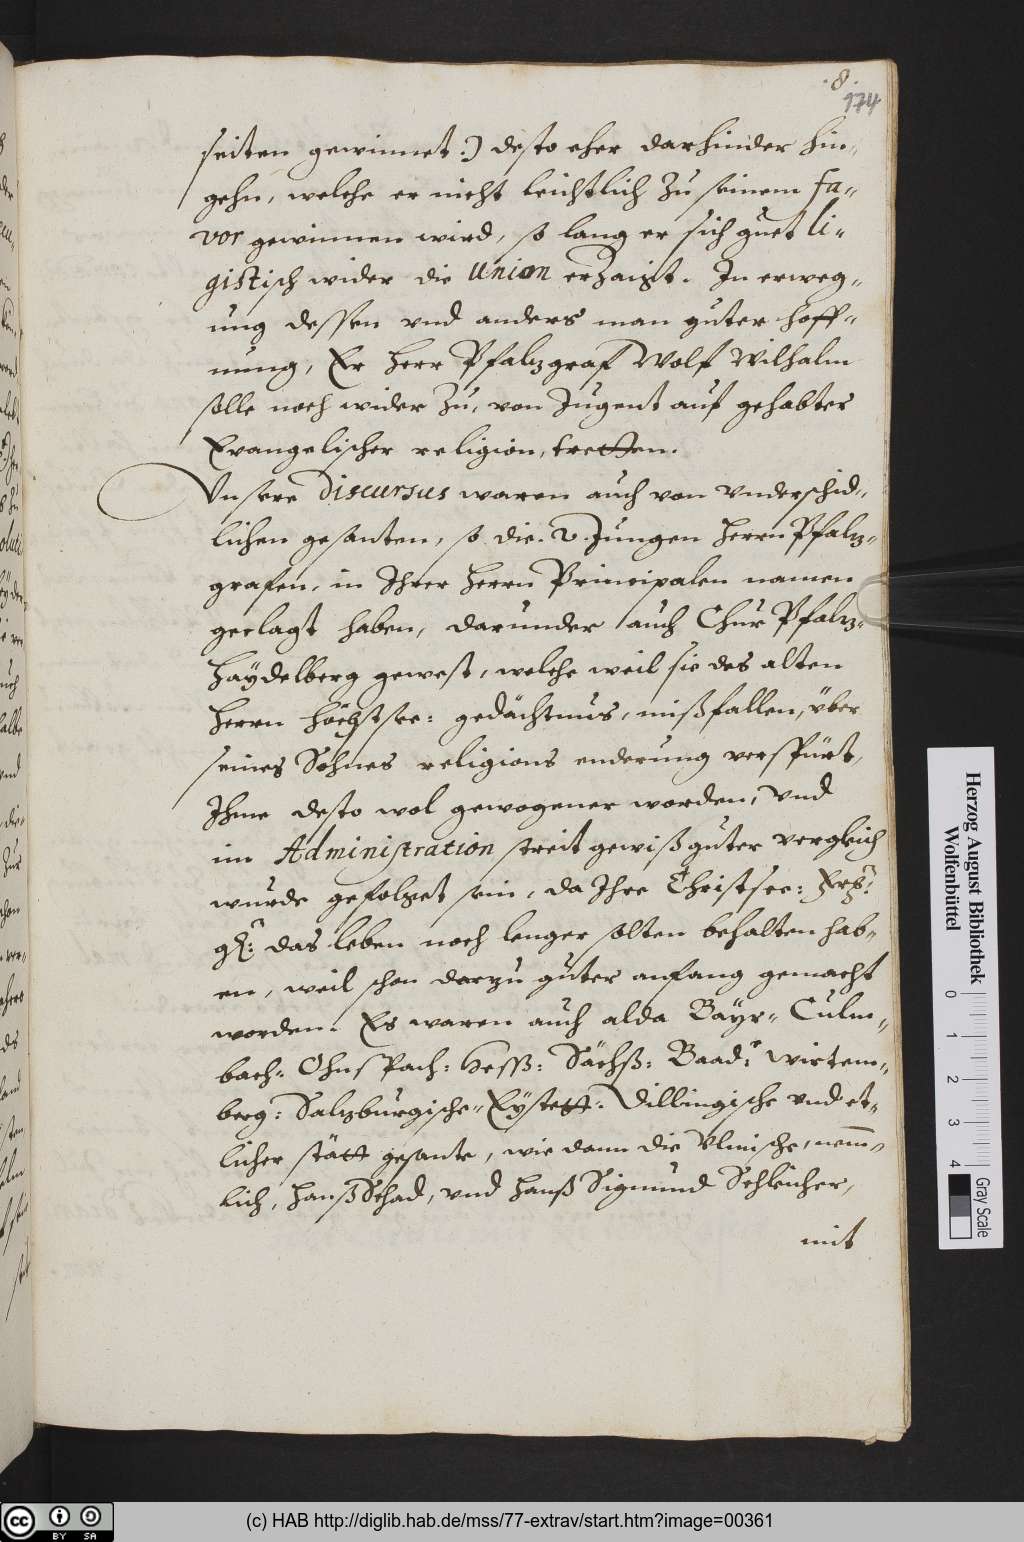 .8.
174
seiten gewinnet:) desto eher darhinder hin„
gehn, welche er nicht leichtlich zu seinem fa„
vor gewinnen wird, so lang er sich guet li„
gistisch wider die Union erzaigt. In erweg„
ung dessen vnd anders man guter hoff„
nung, Er Herr Pfalzgraf Wolf Wilhalm
solle noch wider zu, von Jugent auf gehabter
Evangelischer religion, tretten.
Vnsere Discursus waren auch von vnderschid„
lichen gesanten, so die .2. Jungen Herrn Pfalz„
grafen, in Ihrer Herrn Principalen namen
geclagt haben, darunder auch Chur Pfalz„
Häydelberg gewest, welche weil sie des alten
Herrn höchstsee: gedächtnus, mißfallen, über
seines Sohnes religions enderung verspürt,
Ihme desto wol gewogener worden, Vnd
im Administration streit gewiß guter vergleich
wurde gefolget sein, da Ihre Christsee:
g: das leben noch lenger solten behalten hab„
en, weil schon darzu guter anfang gemacht
worden. Es waren auch alda Bayr„ Culm„
bach„ Ohnspach: Hess: Sächß: Baad: Wirtem„
berg: Salzburgische„ Eystett: Dillingische vnd et„
licher stätt gesante, wie dann die Vlmische, nem„
lich, Hanß Schad, vnd Hanß Sigmund Schleicher,
mit
Herzog August Bibliothek
Wolfenbüttel
0 1 2 3 4
Gray Scale
(c) HAB http://diglib.hab.de/mss/77-extrav/start.htm?image=00361
cc BY SA